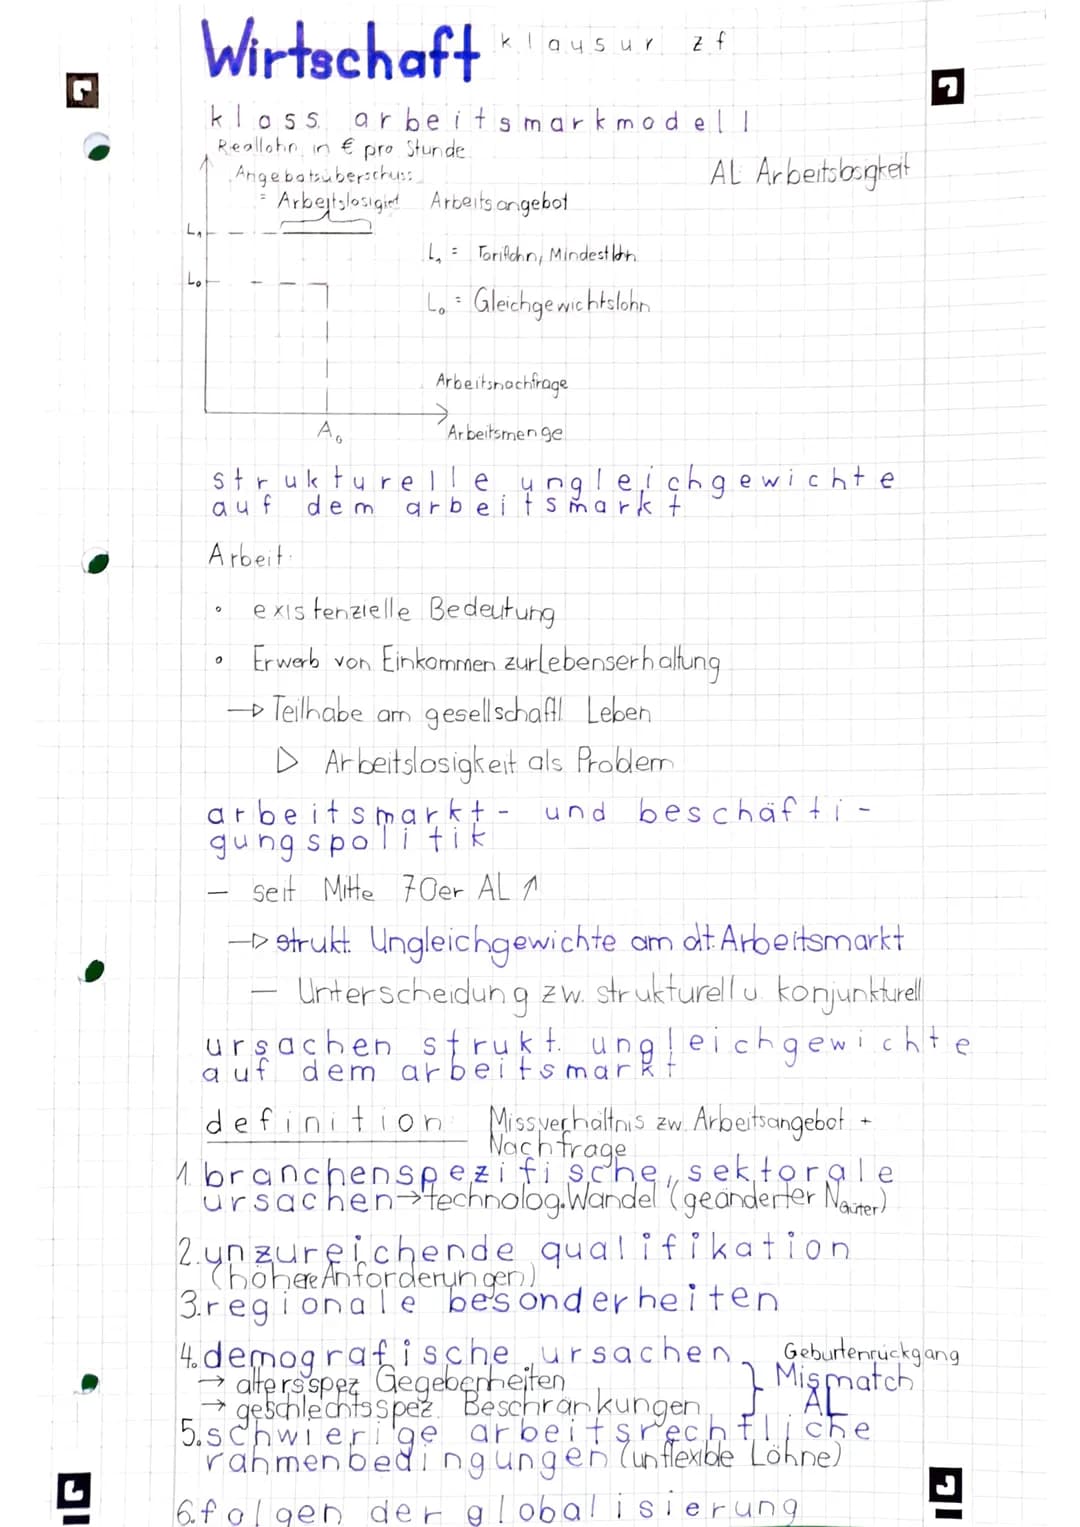 Wirtschaft klausur zf
klass. arbeitsmarkmodell
Reallohn in € pro Stunde
AL: Arbeitslosigkeit
Angebotsüberschuss
= Arbeitslosigkeit Arbeitsangebot
L₁
L₁ = Tariflohn, Mindestlohn
L₀
L₀ = Gleichgewichtslohn
Arbeitsnachfrage
A₀ Arbeitsmenge
strukturelle ungleichgewichte
auf dem arbeitsmarkt
Arbeit:
• existenzielle Bedeutung
• Erwerb von Einkommen zur Lebenserhaltung
→ Teilhabe am gesellschaftl. Leben
▷ Arbeitslosigkeit als Problem
arbeitsmarkt- und beschäfti-
gungspolitik
– seit Mitte 70er AL ↑
→ strukt. Ungleichgewichte am dt. Arbeitsmarkt
– Unterscheidung zw. strukturell u. konjunkturell
ursachen strukt. ungleichgewichte
auf dem arbeitsmarkt
definition: Missverhältnis zw. Arbeitsangebot +
Nachfrage
1. branchenspezifische, sektorale
ursachen → technolog. Wandel (geänderter N Güter)
2. unzureichende qualifikation
(höhere Anforderungen)
3. regionale besonderheiten
4. demografische ursachen Geburtenrückgang
→ altersspez. Gegebenheiten } Mismatch
→ geschlechtsspez. Beschränkungen AL
5. schwierige arbeitsrechtliche
rahmenbedingungen (unflexible Löhne)
6. folgen der globalisierung